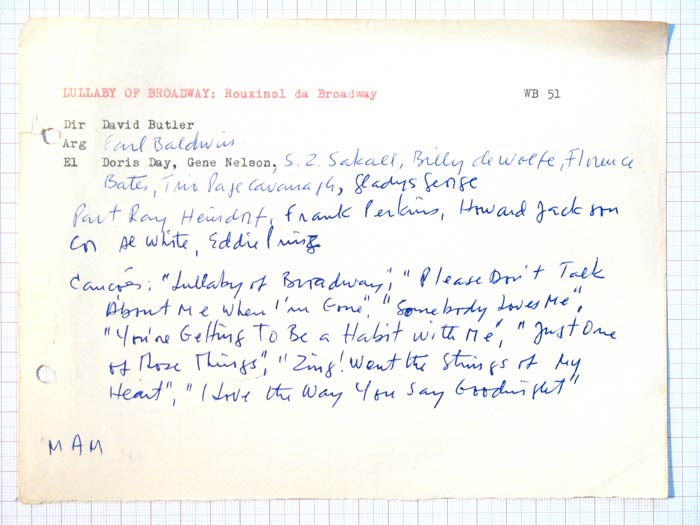 LULLABY OF BROADWAY: Rouxinol da Broadway WB 51
Dir David Butler
Arg Earl Baldwin
El Doris Day, Gene Nelson, S. Z. Sakall, Billy de Wolfe, Florence
Bates, Trio Page Cavanagh, Gladys George
Part Ray Heindorf, Frank Perkins, Howard Jackson
Cor Al White, Eddie Prinz
Canções: "Lullaby of Broadway", "Please Don't Talk
About Me When I'm Gone", "Somebody Loves Me",
"You're Getting To Be a Habit with Me", "Just One
of Those Things", "Zing! Went the Strings of My
Heart", "I Love the Way You Say Goodnight"
MAM